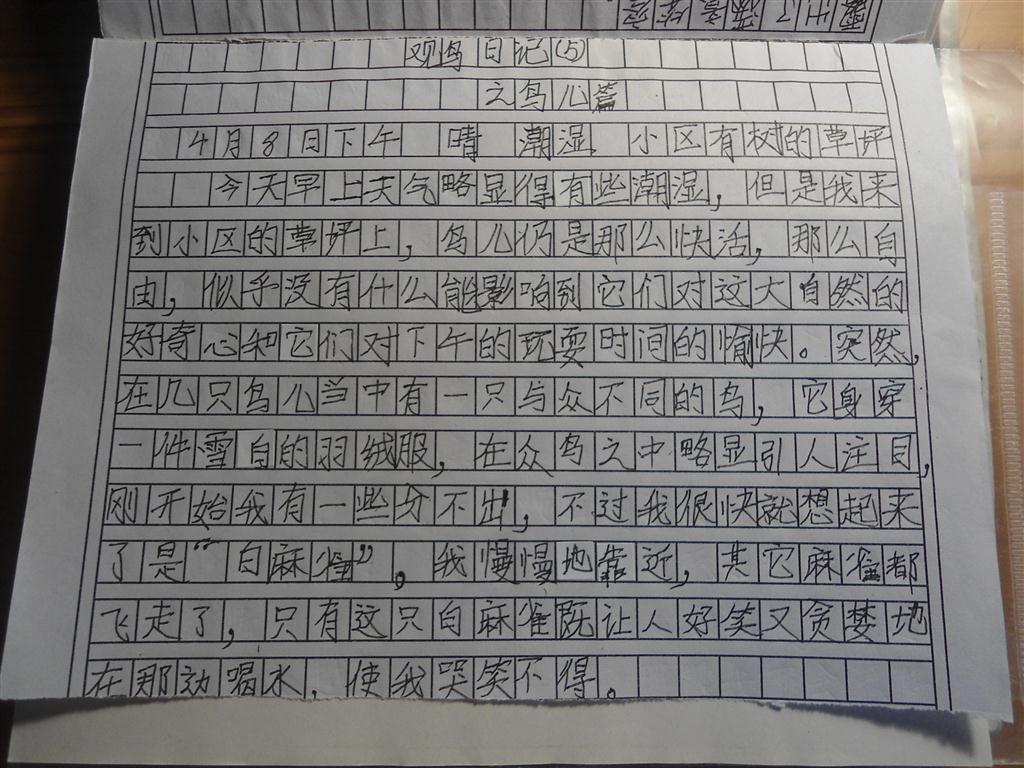 观鸟日记(5)
之鸟儿篇
4月8日下午 晴 潮湿 小区有树的草坪
今天早上天气略显得有些潮湿，但是我来
到小区的草坪上，鸟儿仍是那么快活，那么自
由，似乎没有什么能影响到它们对这大自然的
好奇心和它们对下午的玩耍时间的愉快。突然，
在几只鸟儿当中有一只与众不同的鸟，它身穿
一件雪白的羽绒服，在众鸟之中略显引人注目，
刚开始我有一些分不出，不过我很快就想起来
了是“白麻雀”。我慢慢地靠近，其它麻雀都
飞走了，只有这只白麻雀既让人好笑又贪梦地
在那边喝水，使我哭笑不得。